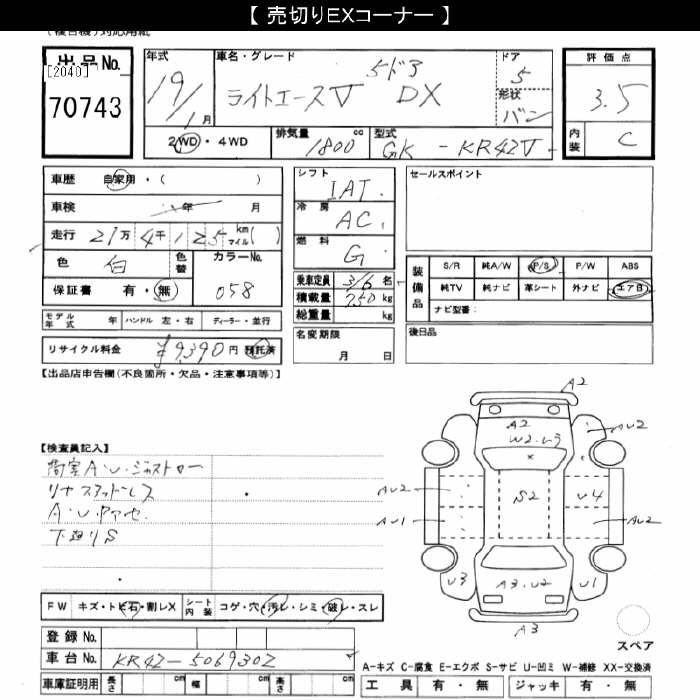 【 売切りEXコーナー 】
(複合機)対応用紙
出品No.
[2040]
70743
年式
19/1月
車名・グレード
5ドア
ライトエースV DX
ドア
5
形状
バン
評価点
3.5
内装
C
2WD・4WD
排気量 1800 cc
型式 GK - KR42V
車歴 自家用・( )
車検 年 月
走行 21万4千125 km マイル( )
色 白
色替
カラーNo.
058
保証書 有・無
モデル年式 年 ハンドル 左・右 ディーラー・並行
リサイクル料金 ¥9,390円 預託済
シフト
IAT.
冷房
AC.
燃料
G.
乗車定員 3/6 名
積載量 250 kg
総重量 kg
名変期限
月 日
セールスポイント
装備品
S/R 純A/W P/S P/W ABS
純TV 純ナビ 革シート 外ナビ エアB
ナビ型番:
後日品
【出品店申告欄(不良箇所・欠品・注意事項等)】
【検査員記入】
荷室A.U.
リヤスタッドレス
下廻りS
A2
A2
W2
AU2
AU2
AU1
S2
U4
AU2
U3
A3.U2
U1
A3
スペア
FW キズ・トビ石・割レX
シート内装 コゲ・穴・汚レ・シミ・破レ・スレ
登録No.
車台No. KR42-5069302
車庫証明用 長さ cm 幅 cm 高さ cm
A-キズ C-腐食 E-エクボ S-サビ U-凹ミ W-補修 XX-交換済
工具 有・無 ジャッキ 有・無